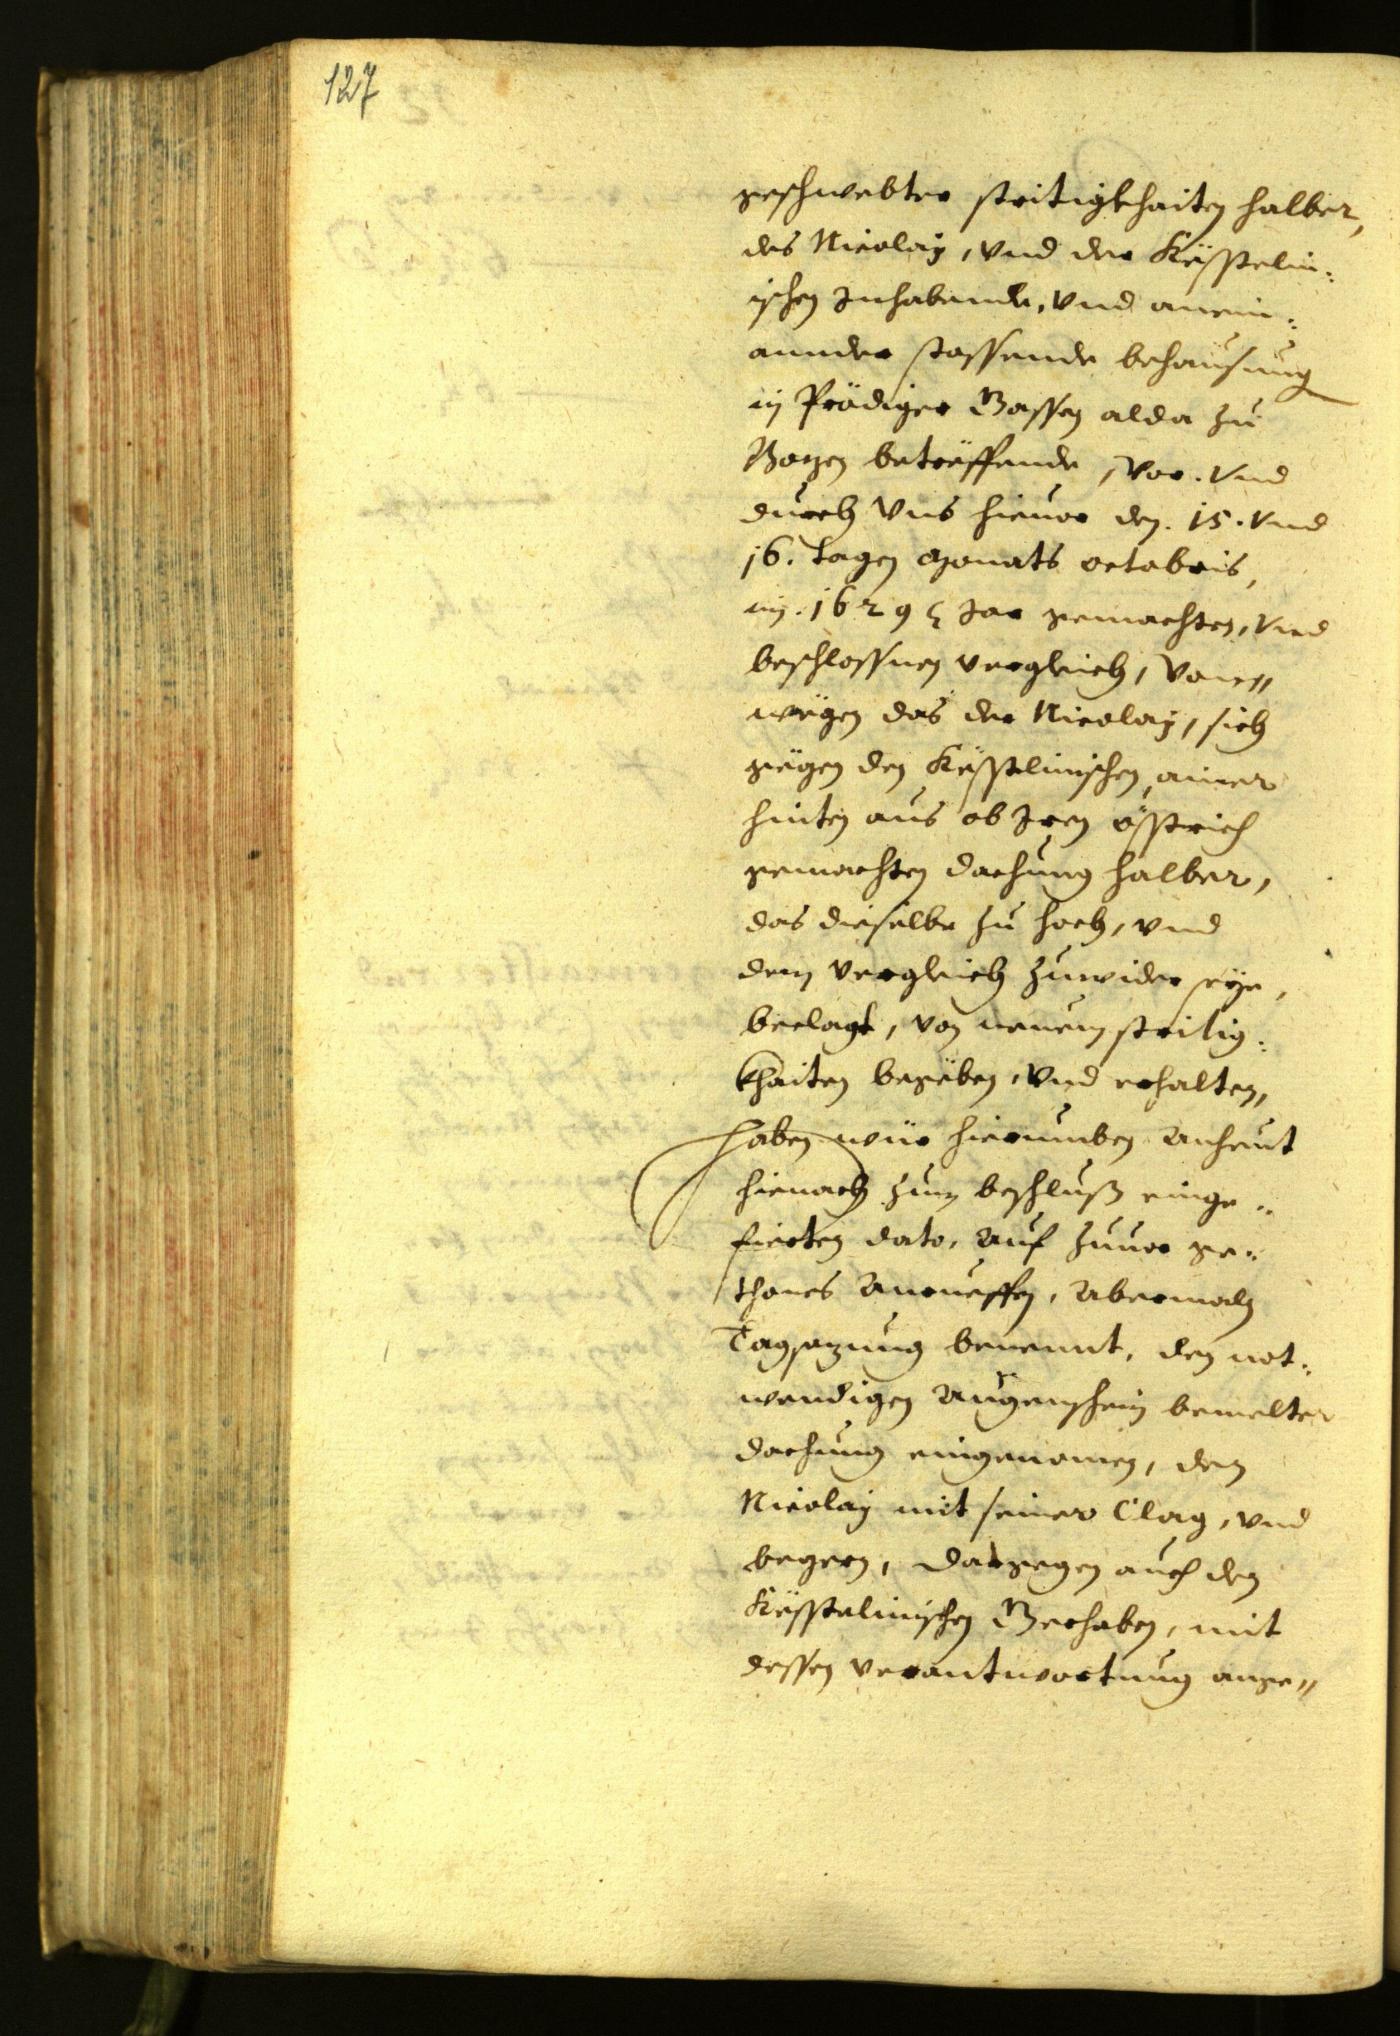 127
geschwebter stritigkhaiten halber,
des Nicolaÿ, vnd der Kësstelin:
ischen Inhabende, vnd anein:
annder stossende behausung
in Prödiger Gassen alda zu
Bozen betrëffende, vor. vnd
durch vns hieuor den. 15. vnd
16. tagen Monats octobris,
im. 1629 Jar gemachten, vnd
beschlossnen vergleich, von„
wëgen das der Nicolaÿ, sich
gëgen den Kësstelinischen, ainer
hinten aus ob Iren össtrich
gemachten dachung halber,
das dieselbe zu hoch, vnd
dem vergleich zuwider seÿe,
beclagt, von neuem stritig:
khaiten begëben, vnd erhalten,
haben wür hierumben anheut
hienach zum beschluß einge„
fierten dato, auf zuuor ge„
thanes anrueffen, abermaln
Tagsazung benennt, den not:
wendigen augenschein bemelter
dachung eingenomen, den
Nicolaÿ mit seiner Clag, vnd
begern, dargegen auch den
Kësstelinischen Gerhaben, mit
dessen verantwortung ange„